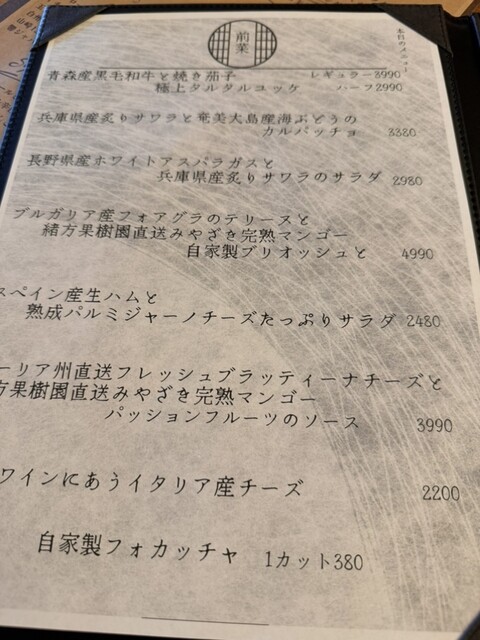 前菜
本日のメニュー
青森産黒毛和牛と焼き茄子 レギュラー3990
極上タルタルユッケ ハーフ2990
兵庫県産炙りサワラと奄美大島産海ぶどうの
カルパッチョ 3380
長野県産ホワイトアスパラガスと
兵庫県産炙りサワラのサラダ 2980
ブルガリア産フォアグラのテリーヌと
緒方果樹園直送みやざき完熟マンゴー
自家製ブリオッシュと 4990
スペイン産生ハムと
熟成パルミジャーノチーズたっぷりサラダ 2480
ーリア州直送フレッシュブラッティーナチーズと
方果樹園直送みやざき完熟マンゴー
パッションフルーツのソース 3990
ワインにあうイタリア産チーズ 2200
自家製フォカッチャ 1カット380